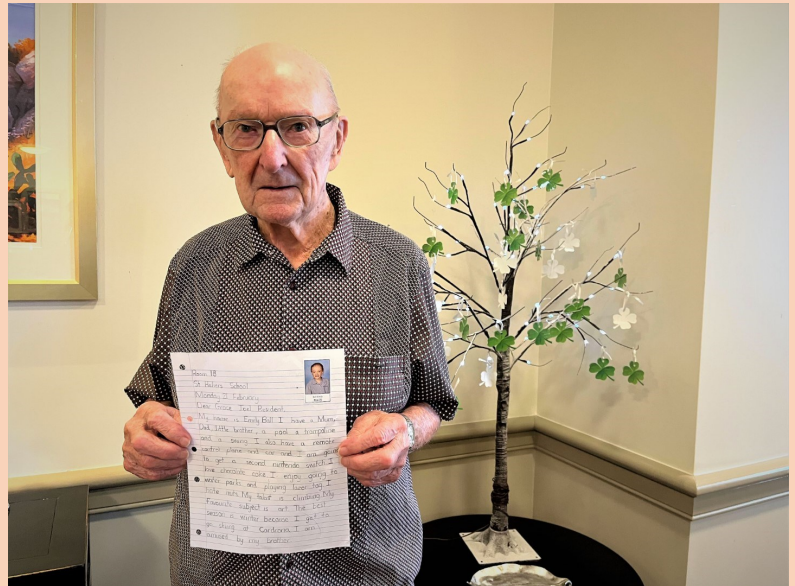 Room 18
St Heliers School
Monday 11 February
Dear Grace Joel Resident,
My name is Emily Ball I have a Mum,
Dad, little brother, a pool a trampoline
and a swing I also have a remote
control plane and car and I am going
to get a second nintendo switch I
love chocolate cake I enjoy going to
water parks and playing laser tag I
hate nuts My talent is climbing My
favourite subject is art The best
season is winter because I get to
go skiing at Cardrona I am
annoyed by my brother